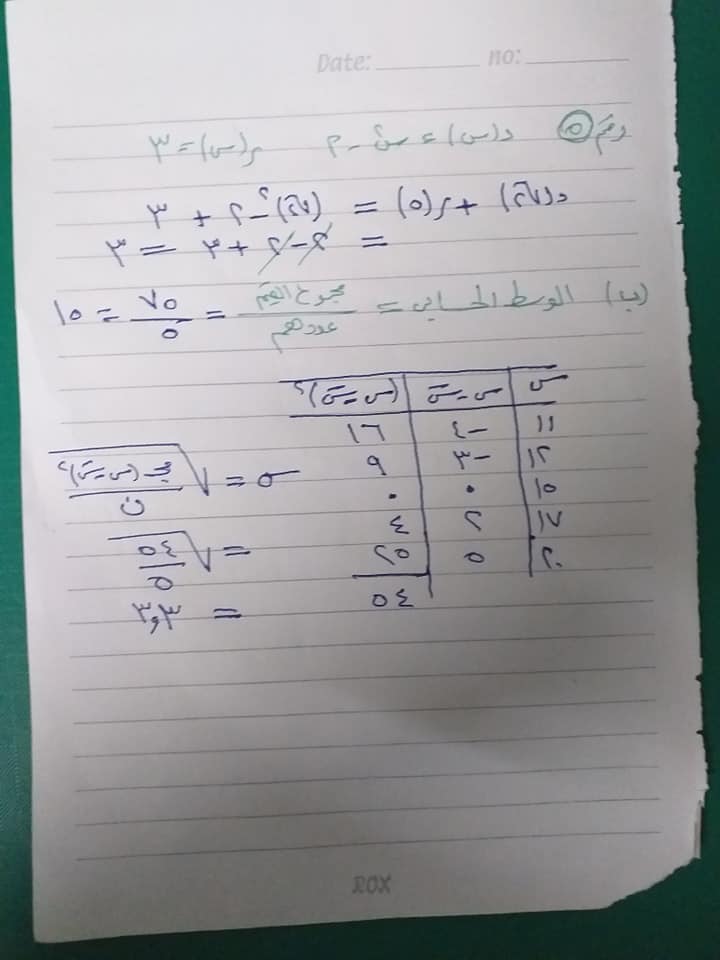 Date: no:
رقم ٥ د(س) = س² - ٢ ر(س) = ٣
د(√٢) + ر(٥) = (√٢)² - ٢ + ٣
= ٢ - ٢ + ٣ = ٣
(ب) الوسط الحسابي = مجموع القيم / عددهم = ٧٥ / ٥ = ١٥
س | س - س̄ | (س - س̄)²
١١ | -٤ | ١٦
١٢ | -٣ | ٩
١٥ | ٠ | ٠
١٧ | ٢ | ٤
٢٠ | ٥ | ٢٥
٥٤
σ = √(مجـ (س - س̄)² / ن)
= √(٥٤ / ٥)
= ٣,٣
ROX